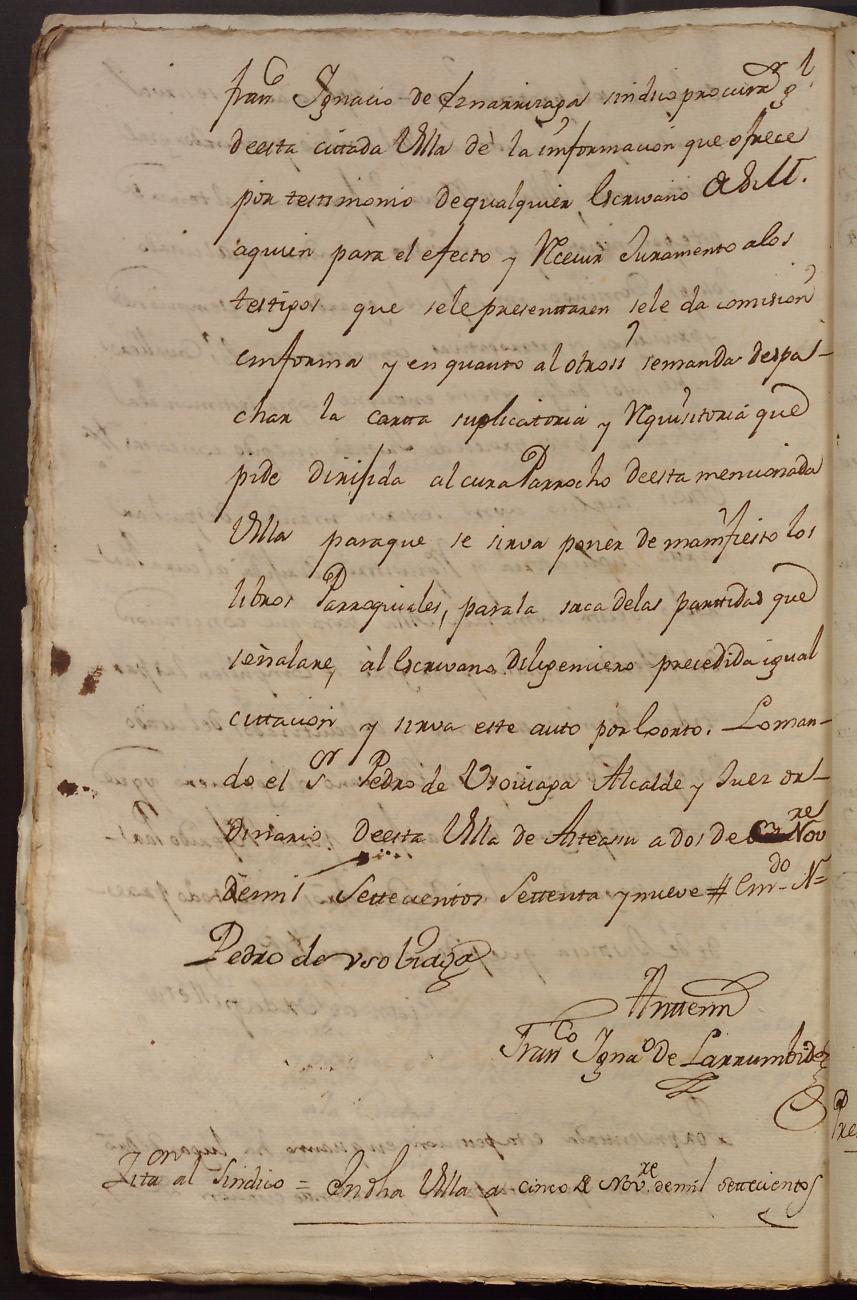 fran.co Ignacio de Iznarrizaga sindico procurad.r g.l
deesta cittada Villa dè la imformacion que ofrece
por testimonio dequalquier Escrivano R.l de S.M.
aquien para el efecto y Recevir Juramento alos
testigos que sele presenttaren sele da comision
emforma y en quanto al otrossi semanda despa-
char la cartta suplicatoria y Requisitoria que
pide dirijida al cura Parrocho deesta mencionada
Villa paraque se sirva poner de manifiesto los
libros Parroquiales, para la saca delas parttidas que
señalare, al Escrivano diligenciero precedida igual
cittacion y sirva este auto por Exorto. Loman-
do el S.or Pedro de Vsoviaga Alcalde y Juez ordi-
dinario deesta Villa de Asteasu a dos de Nov.res
demil Settecientos Settenta y nueve # Em.do N=
Pedro de vsobiaga
Anttemi
Fran.co Igna.o de Larrumbide
Zita.on al Sindico = En dha Villa a cinco de Nov.re demil settecientos
Pre